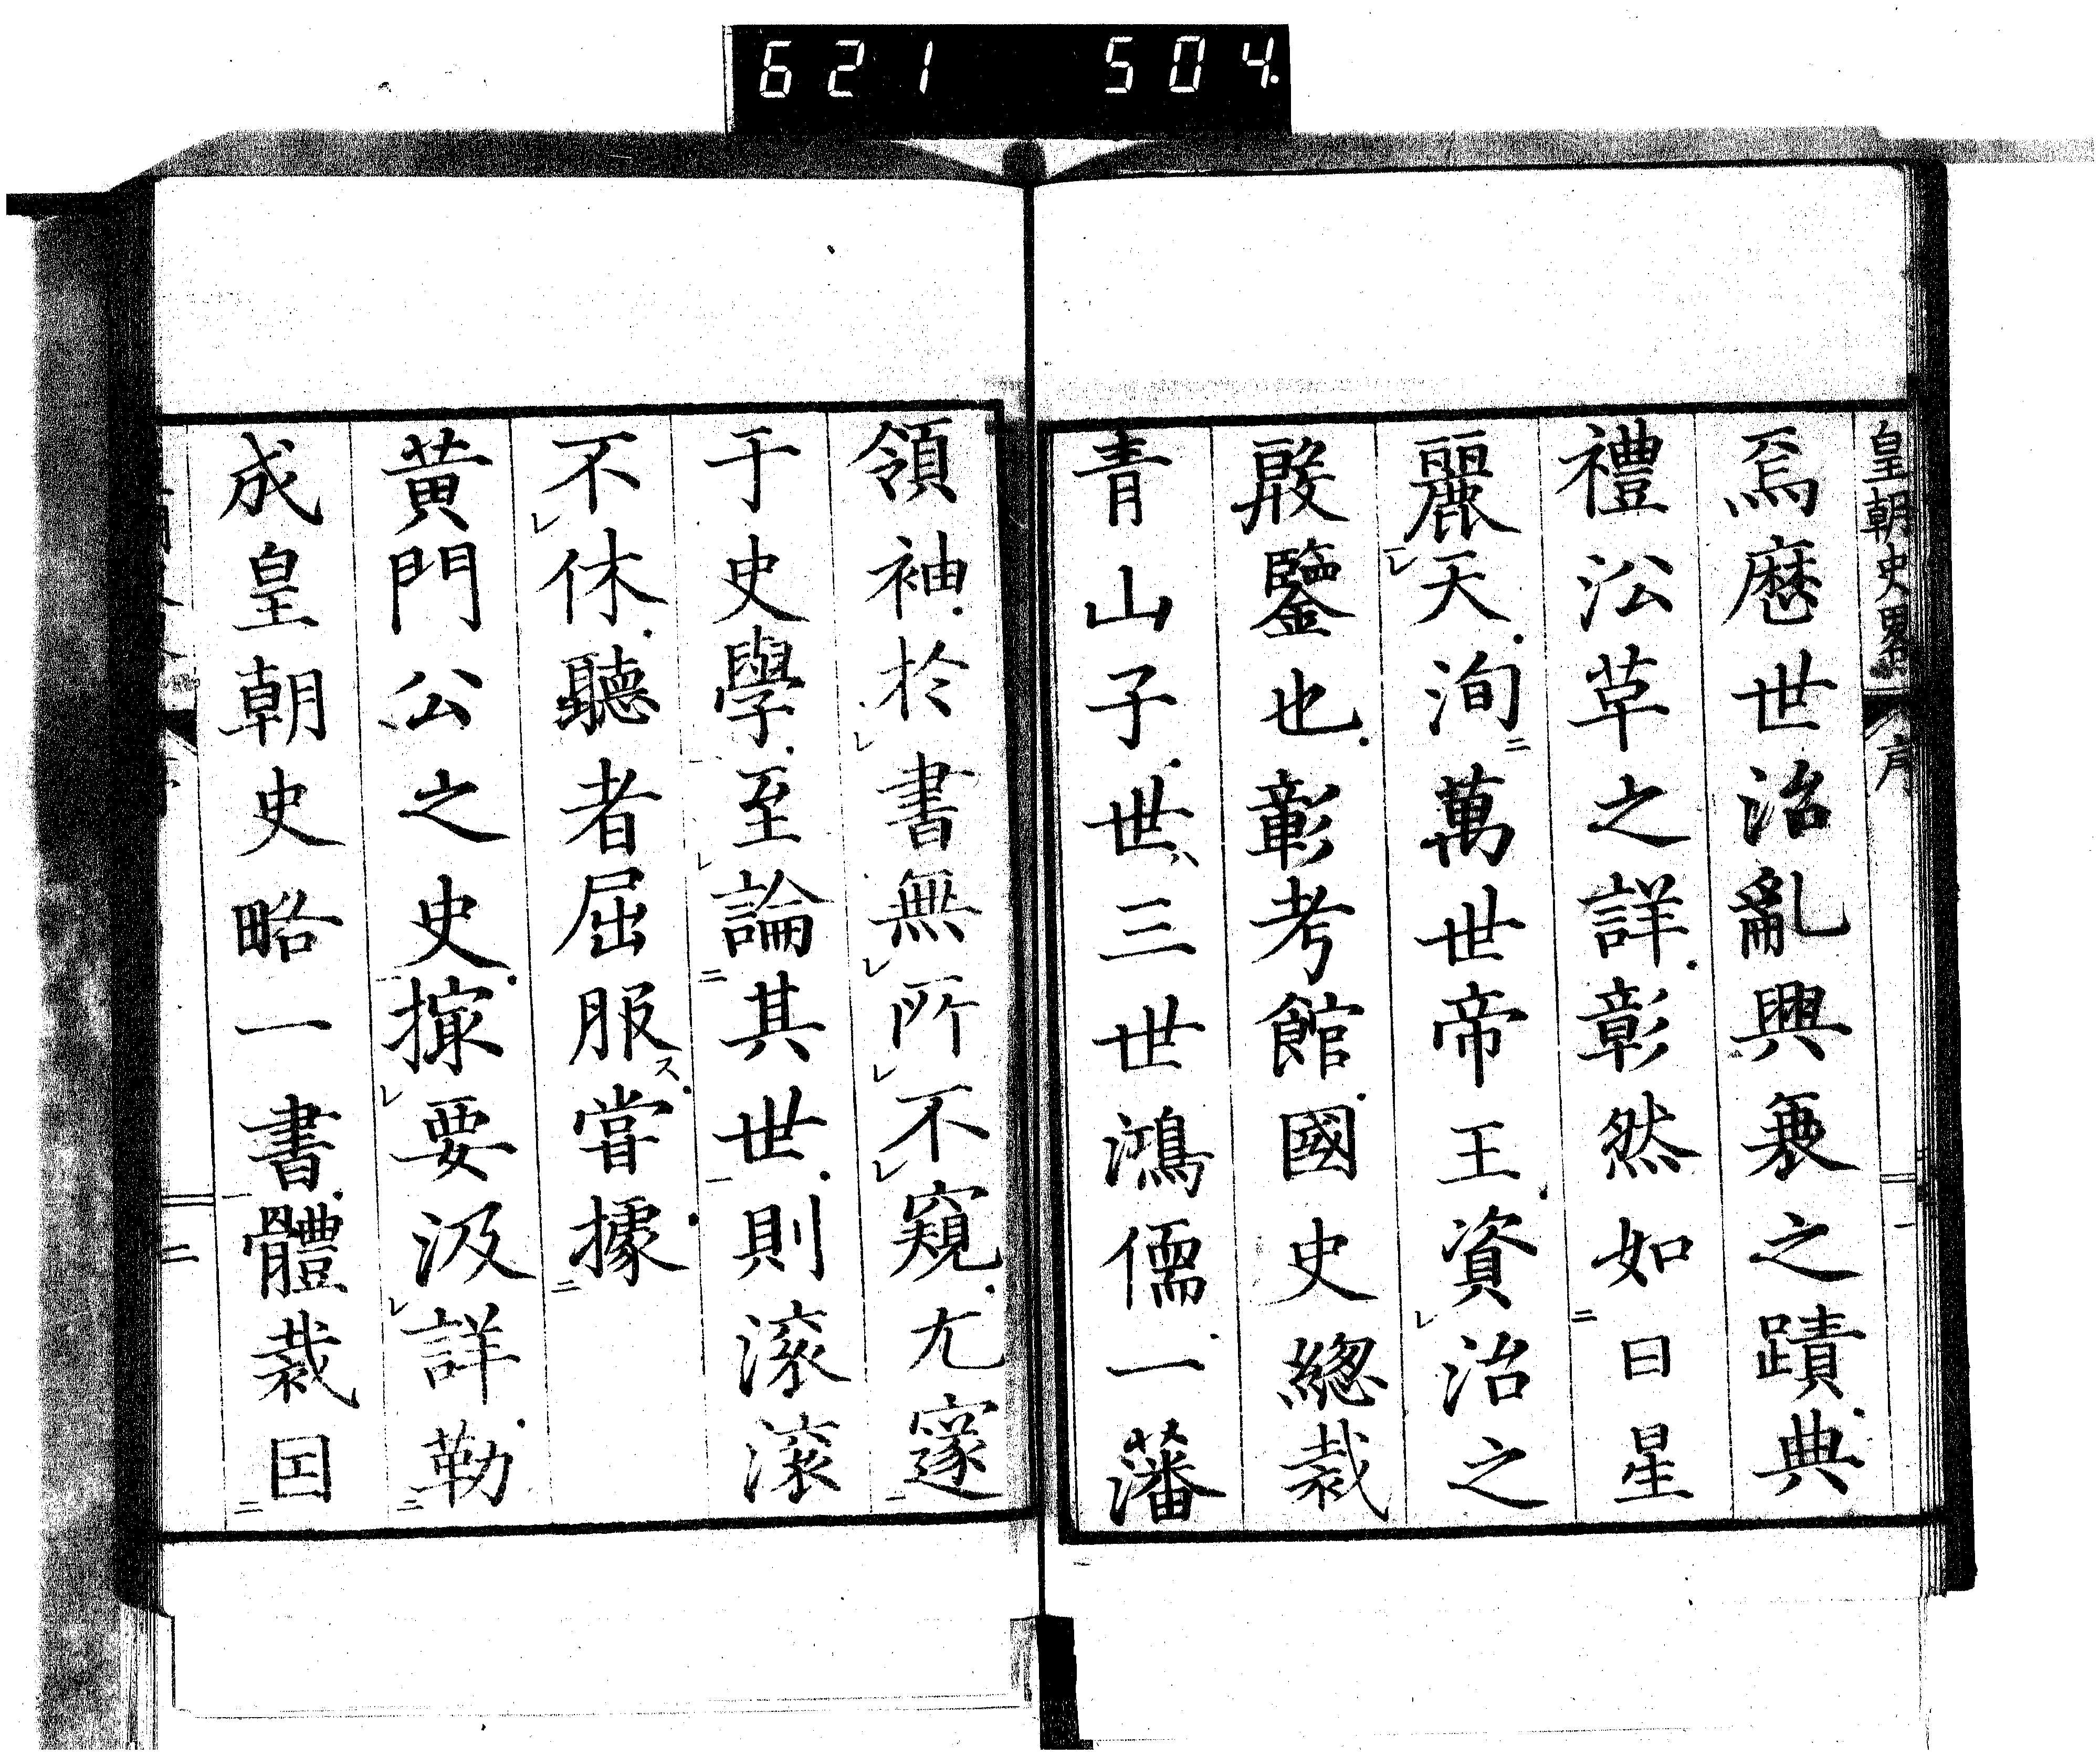 621 504.
皇朝史畧 序 一
焉歷世治亂興衰之蹟典
禮沿革之詳彰然如日星
麗天洵萬世帝王資治之
殷鑒也彰考館國史總裁
青山子世三世鴻儒一藩
領袖於書無所不窺尤邃
于史學至論其世則滚滚
不休聽者屈服嘗據
黄門公之史撮要汲詳勒
成皇朝史略一書體裁固
二